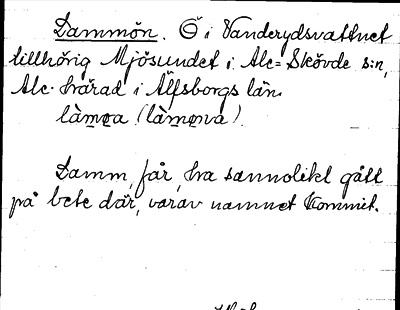 Lammön. Ö i Vanderydsvattnet
tillhörig Mjösundet i Ale-Skövde s:n,
Ale härad i Älfsborgs län.
Lamm, får, ha sannolikt gått
på bete där, varav namnet kommit.